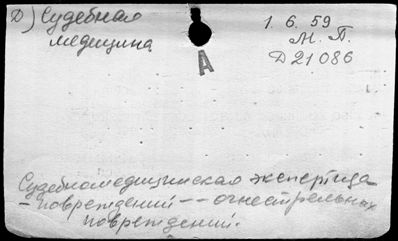 Д) Судебная
медицина
1. 6. 59
М. П.
Д 21086
А
Судебномедицинская экспертиза
- повреждений -- огнестрельных
повреждений.